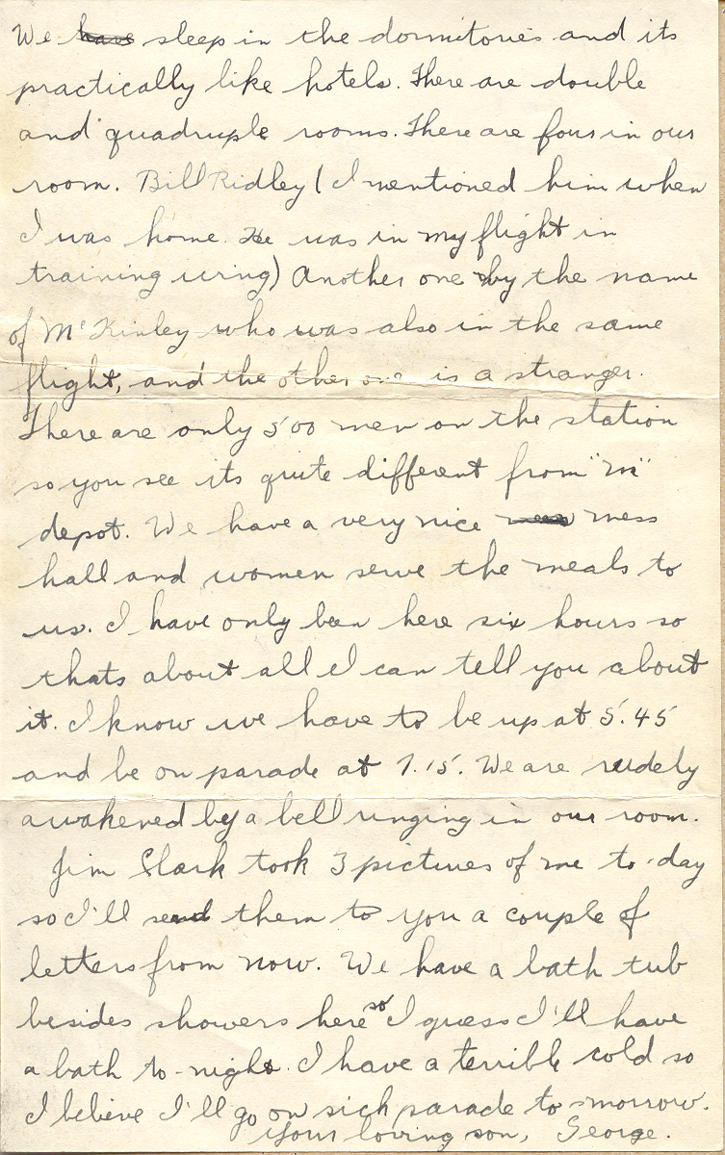 We have sleep in the dormitories and its
practically like hotels. There are double
and quadruple rooms. There are four in our
room. Bill Ridley (I mentioned him when
I was home. He was in my flight in
training wing) Another one by the name
of McKinley who was also in the same
flight, and the other one is a stranger.
There are only 500 men on the station
so you see its quite different from "M"
depot. We have a very nice mess
hall and women serve the meals to
us. I have only been here six hours so
thats about all I can tell you about
it. I know we have to be up at 5.45
and be on parade at 7.15. We are rudely
awakened by a bell ringing in our room.
Jim Clark took 3 pictures of me to-day
so I'll send them to you a couple of
letters from now. We have a bath tub
besides showers here so I guess I'll have
a bath to-night. I have a terrible cold so
I believe I'll go on sick parade to-morrow.
Your loving son, George.